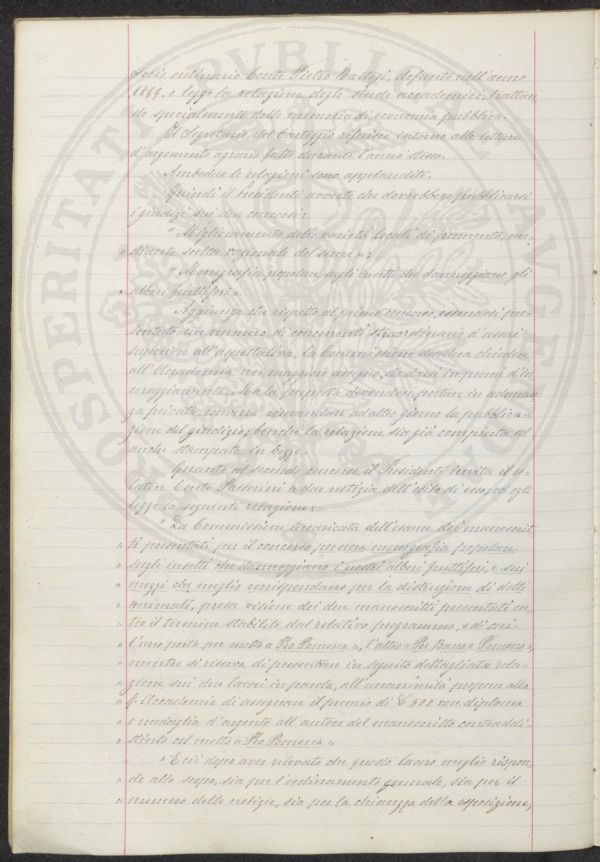 Socio ordinario Conte Pietro Bastogi, defunto nell'anno
1899. e legge la relazione degli studi accademici, trattan
do specialmente delle memorie di economia pubblica.
Il Segretario del Carteggio riferisce intorno alle letture
d'argomento agrario fatte durante l'anno stesso.
Ambedue le relazioni sono applaudite.
Quindi il Presidente avverte che dovrebbero pubblicarsi
i giudizi sui due concorsi:
"Miglioramento delle varietà locali di frumento, me
" diante scelta razionale del seme"
"Monografia popolare sugli insetti che danneggiano gli
" alberi fruttiferi".
Aggiunge che rispetto al primo concorso, essendosi pre
sentato un numero di concorrenti straordinario e d'assai
superiore all'aspettativa, la Commissione desidera chiedere
all'Accademia un maggiore assegno, da darsi in premi d'in
coraggiamento. Ma la proposta dovendosi portare in adunan
za privata, converrà rimandare ad altro giorno la pubblica-
zione del giudizio, benchè la relazione sia già compiuta ed
anche stampata in bozze.
Quanto al secondo concorso, il Presidente invita il re-
latore Conte Passerini a dar notizia dell'esito di esso, ed egli
legge la seguente relazione:
"La Commissione incaricata dell'esame dei manoscrit
" ti presentati per il concorso per una monografia popolare
" sugli insetti che danneggiano i nostri alberi fruttiferi, e sui
" mezzi che meglio corrispondano per la distruzione di detti
" animali, presa visione dei due manoscritti presentati en
" tro il termine stabilito dal relativo programma, e di cui
" l'uno porta per motto "Pro Pomona", l'altro "Per Bacco e Pomona",
" mentre si riserva di presentare in seguito dettagliata rela-
" zione sui due lavori in parola, all'unanimità propone alla
" R. Accademia di assegnare il premio di £ 400 con diploma
" e medaglia d'argento all'autore del manoscritto contraddi
" stinto col motto "Pro Pomona"
"E ciò dopo aver rilevato che questo lavoro meglio rispon
" de allo scopo, sia per l'ordinamento generale, sia per il
" numero delle notizie, sia per la chiarezza della esposizione,